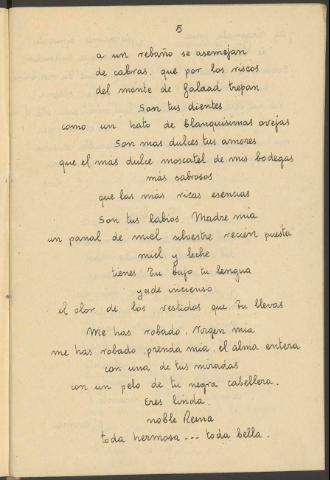 5
a un rebaño se asemejan
de cabras, que por los riscos
del monte de Galaad trepan
Son tus dientes
como un hato de blanquísimas ovejas
Son mas dulces tus amores
que el mas dulce moscatel de mis bodegas
más sabrosos
que las más ricas esencias
Son tus labios, Madre mía
un panal de miel silvestre recién puesta
miel y leche
tienes Tu bajo tu lengua
y es de incienso
el olor de los vestidos que Tu llevas
Me has robado, Virgen mía
me has robado, prenda mía, el alma entera
con una de tus miradas
con un pelo de tu negra cabellera.
Eres linda,
noble Reina
toda hermosa --- toda bella.